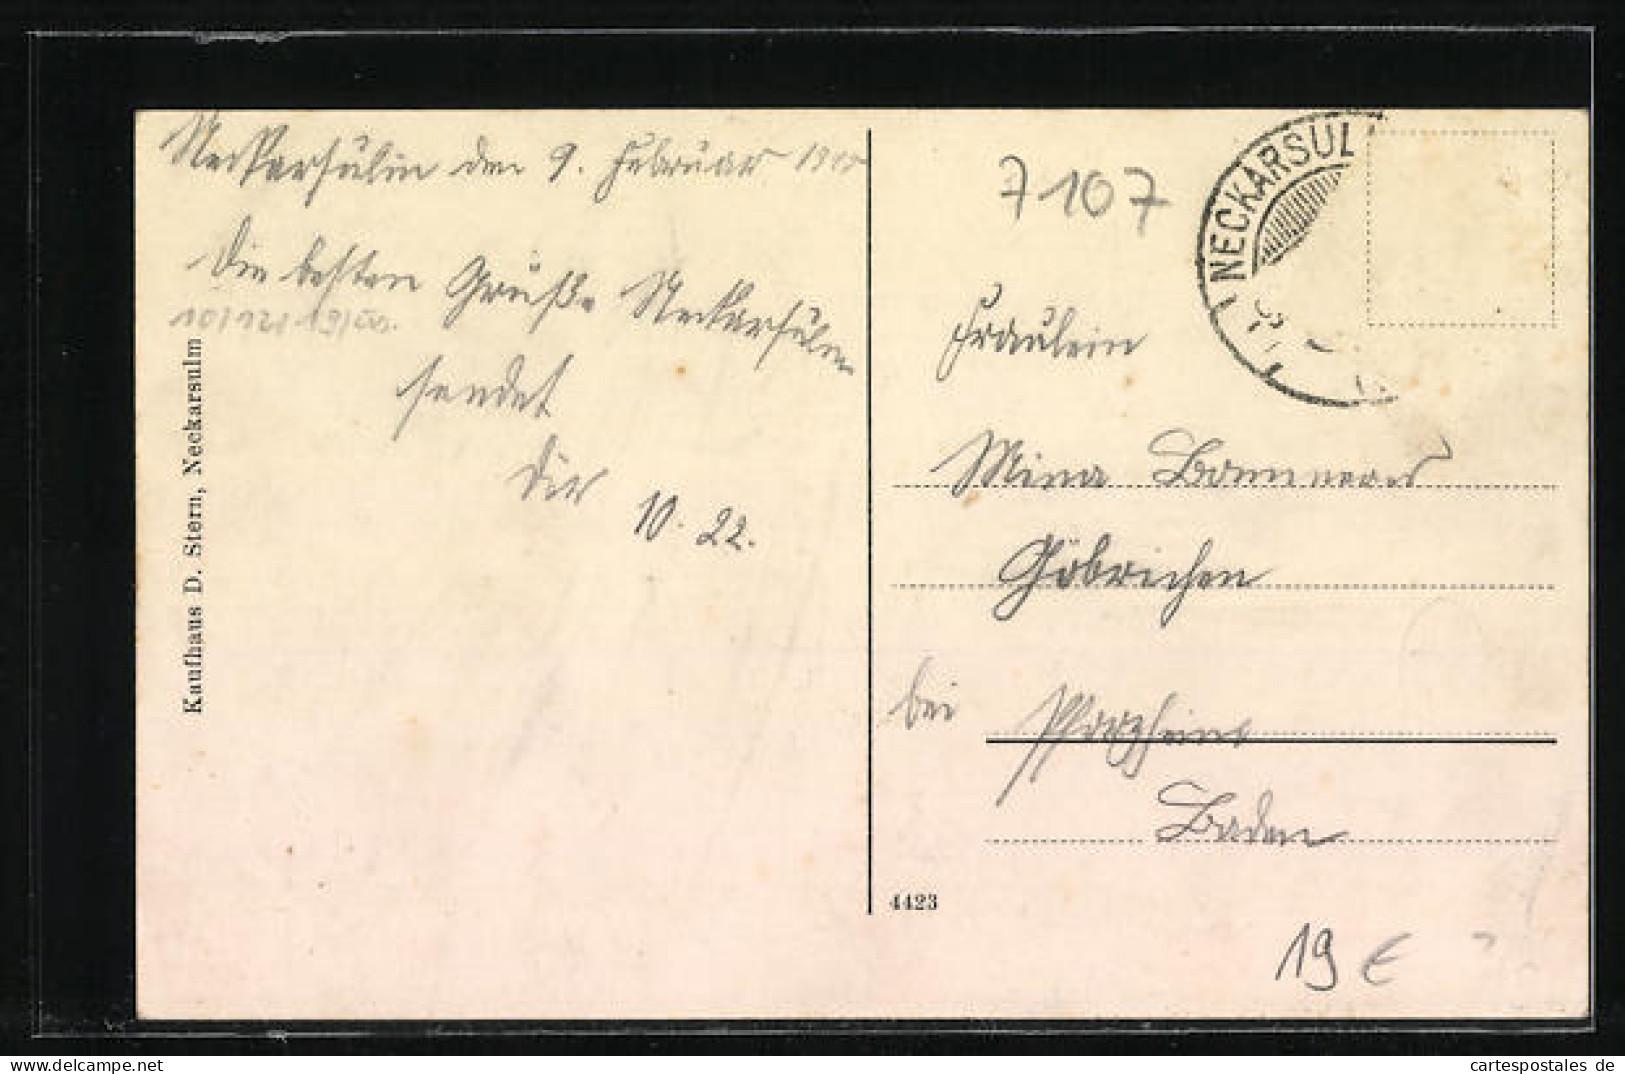 Neckarsulm den 9. Februar 1915
Die besten Grüße Neckarsulm
sendet
Dir 10. 22.
Kaufhaus D. Stern, Neckarsulm
7107
NECKARSUL
Fräulein
Mina
Göbrichen
bei Pforzheim
Baden
4423
19 €
cartespostales de